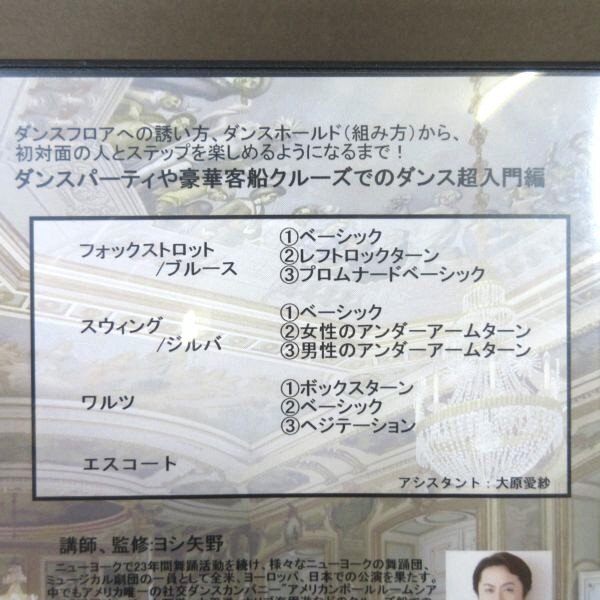 ダンスフロアへの誘い方、ダンスホールド(組み方)から、
初対面の人とステップを楽しめるようになるまで!
ダンスパーティや豪華客船クルーズでのダンス超入門編
フォックストロット
/ブルース
①ベーシック
②レフトロックターン
③プロムナードベーシック
スウィング
/ジルバ
①ベーシック
②女性のアンダーアームターン
③男性のアンダーアームターン
ワルツ
①ボックスターン
②ベーシック
③ヘジテーション
エスコート
アシスタント:大原愛紗
講師、監修:ヨシ矢野
ニューヨークで23年間舞踊活動を続け、様々なニューヨークの舞踊団、
ミュージカル劇団の一員として全米、ヨーロッパ、日本での公演を果たす。
中でもアメリカ唯一の社交ダンスカンパニー"アメリカンボールルームシア